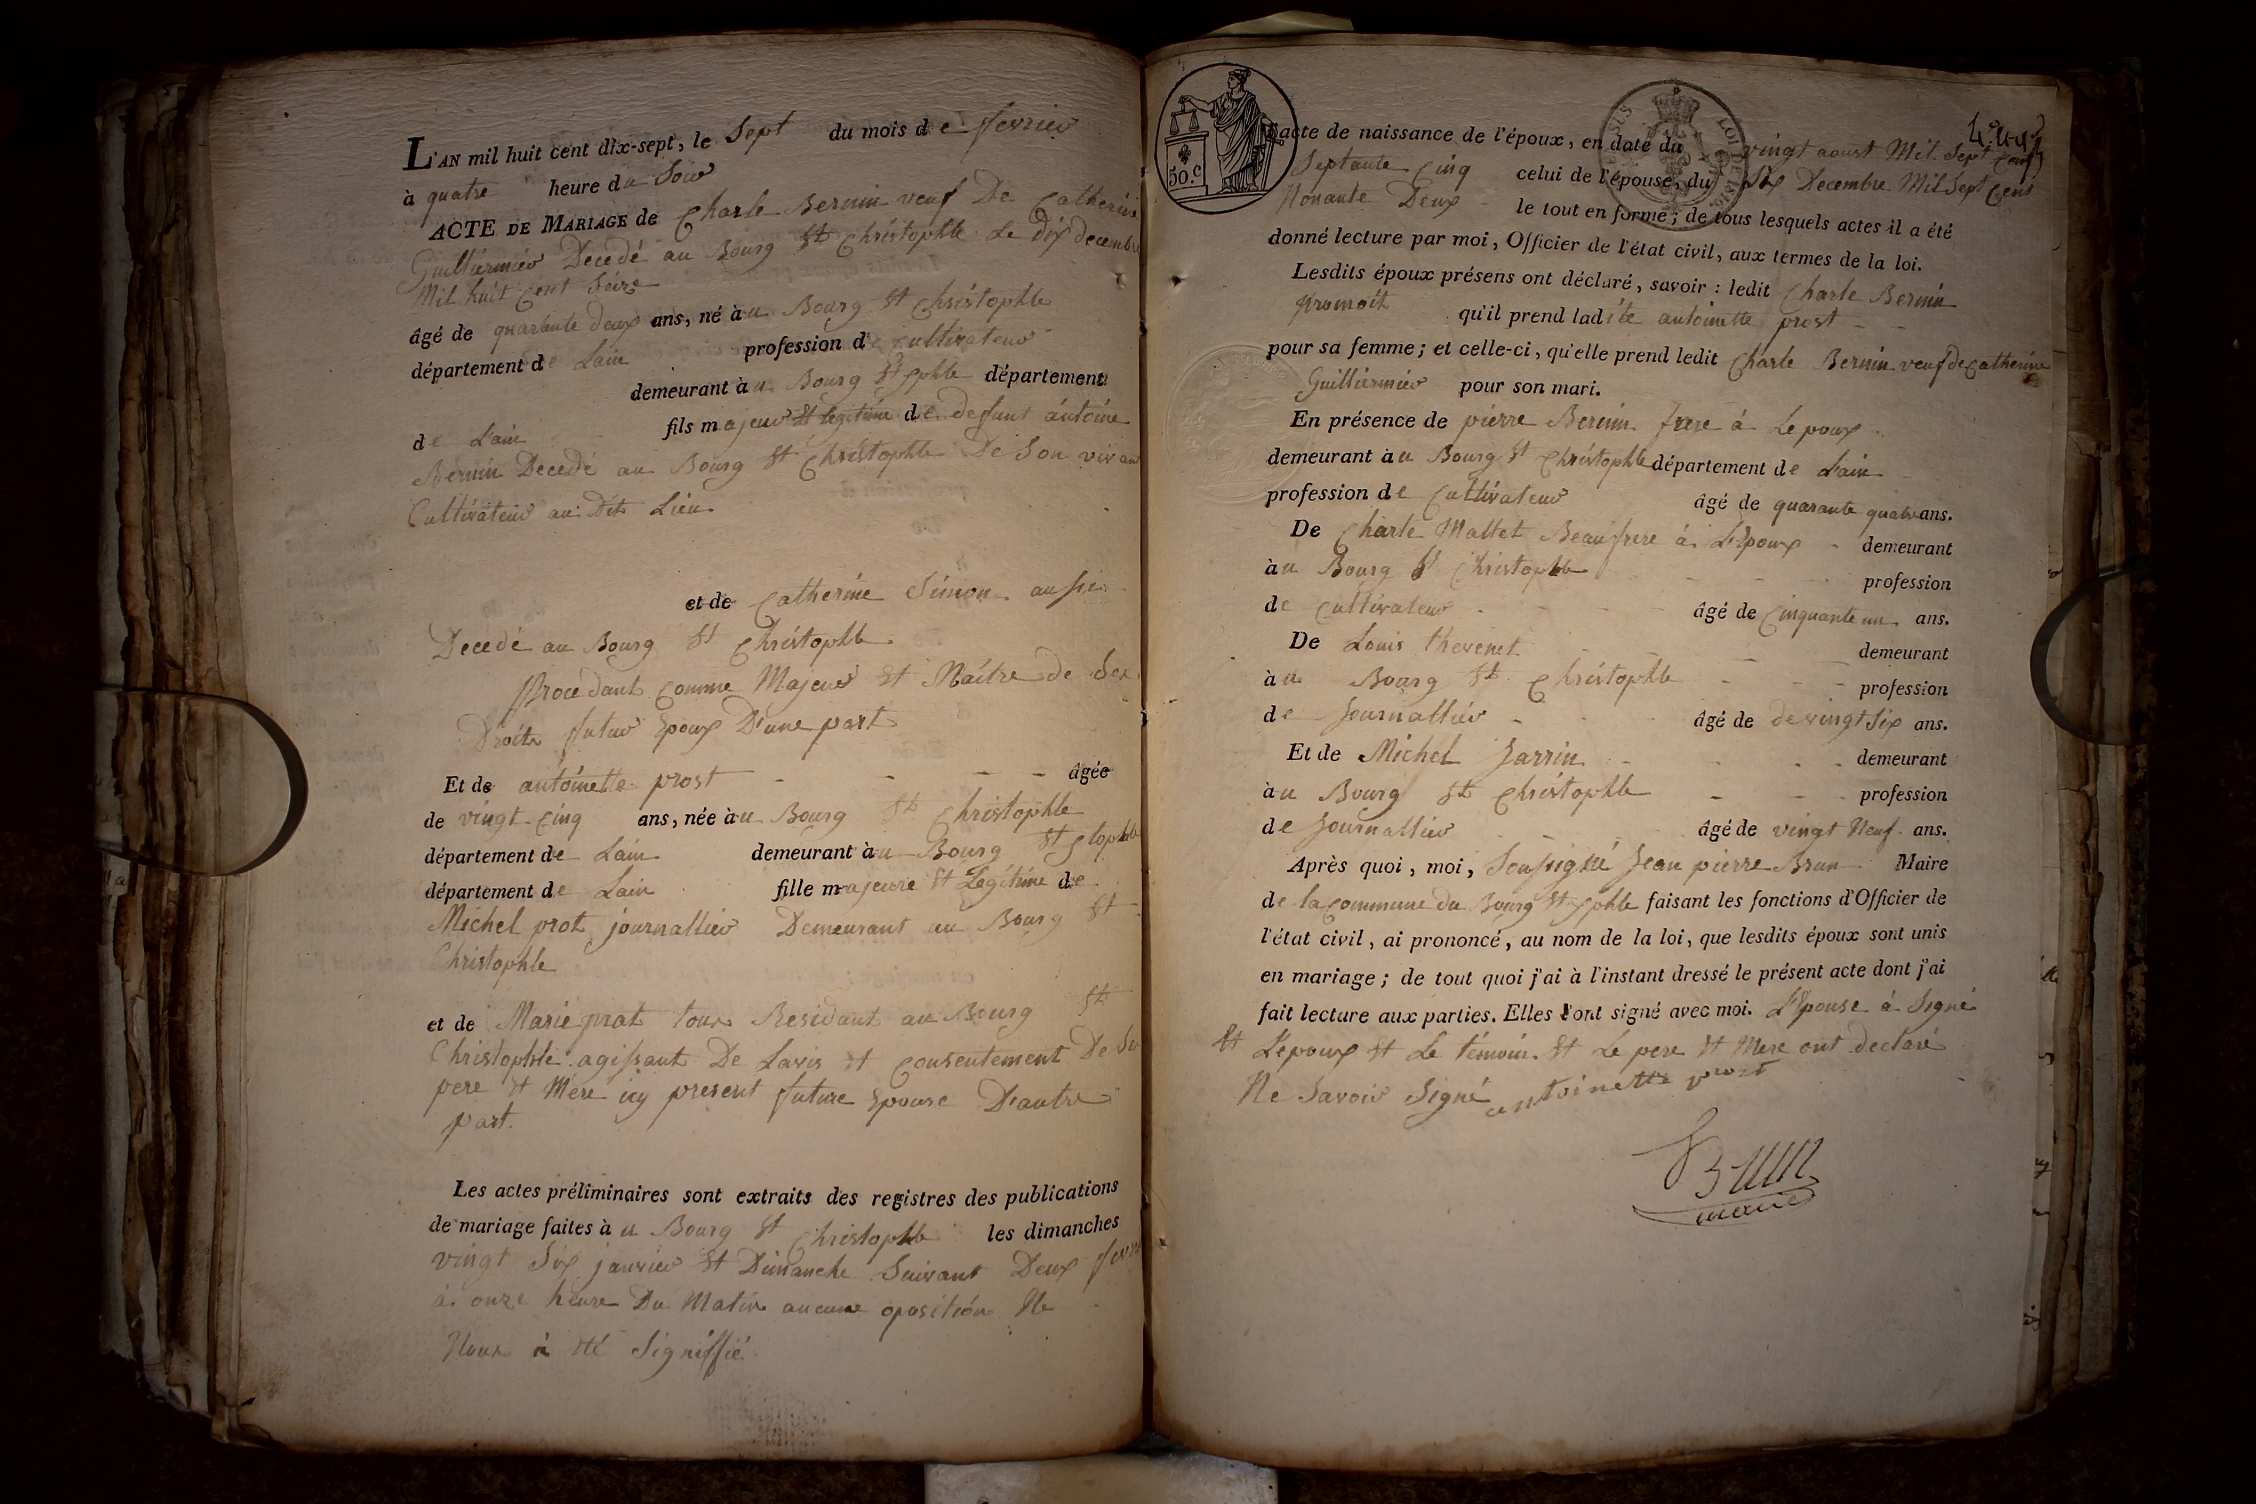 L'AN mil huit cent dix-sept, le Sept du mois de fevrier
à quatre heure du Soir
ACTE DE MARIAGE de Charle Bernin veuf De Catherine
Guilliermier Decedé au Bourg St Christophle Le dix decembre
Mil huit Cent Seize
âgé de quarante deux ans, né à u Bourg St Christophle
département de Lain profession de Cultivateur
demeurant à u Bourg St xphle département
de Lain fils majeur et legitime de defunt antoine
Bernin Decedé au Bourg St Christophle De Son vivant
Cultivateur au Dit Lieu
et de Catherine Simon aussie
Decedé au Bourg St Christophle
Procedant Comme Majeur et Maitre de Ses
Droits futur Epoux D'une part
Et de antoinette prost âgée
de vingt Cinq ans, née à u Bourg St Christophle
département de Lain demeurant à u Bourg St
département de Lain fille majeure et Legitime de
Michel prot journallier Demeurant au Bourg St
Christophle
et de Marie prat tous Residant au Bourg St
Christophle agissant De Lavis et Consentement De
pere et Mere icy present future Epouse D'autre
part.
Les actes préliminaires sont extraits des registres des publications
de mariage faites à u Bourg St Christophle les dimanches
vingt Six janvier et Dimanche Suivant Deux
à onze heure Du Matin aucune oposition Ne
Nous à été Signiffié
50.c
LOI DE 1816
l'acte de naissance de l'époux, en date du vingt aoust Mil Sept Cent
Septante Cinq celui de l'épouse, du Six Decembre Mil Sept Cens
Nonante Deux le tout en forme; de tous lesquels actes il a été
donné lecture par moi, Officier de l'état civil, aux termes de la loi.
Lesdits époux présens ont déclaré, savoir : ledit Charle Bernin
promoit qu'il prend ladite antoinette prost
pour sa femme; et celle-ci, qu'elle prend ledit Charle Bernin veuf de Catherine
Guilliermier pour son mari.
En présence de pierre Bernin frere à Lepoux
demeurant à u Bourg St Christophle département de Lain
profession de Cultivateur âgé de quarante quatre ans.
De Charle Mallet Beaufrere à L'Epoux demeurant
à u Bourg St Christophle profession
de Cultivateur âgé de Cinquante un ans.
De Louis thevenet demeurant
à u Bourg St Christophle profession
de Journallier âgé de de vingt Six ans.
Et de Michel Jarrin demeurant
à u Bourg St Christophle profession
de Journallier âgé de vingt Neuf ans.
Après quoi, moi, Soussigné Jean pierre Brun Maire
de la Commune du Bourg St xphle faisant les fonctions d'Officier de
l'état civil, ai prononcé, au nom de la loi, que lesdits époux sont unis
en mariage; de tout quoi j'ai à l'instant dressé le présent acte dont j'ai
fait lecture aux parties. Elles l'ont signé avec moi. L'Epouse à Signé
Et L'epoux et Le témoin et Le pere et Mere ont declaré
Ne Savoir Signé antoinette prost
Brun
maire